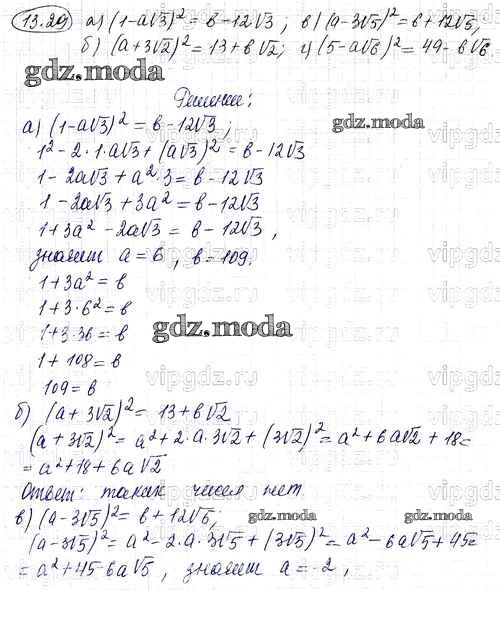 13.29 а) (1-a√3)² = в-12√3 ; в) (a-3√5)² = в+12√5;
б) (a+3√2)² = 13+в√2; г) (5-a√6)² = 49-в√6
gdz.moda
Решение:
а) (1-a√3)² = в-12√3 ;
gdz.moda
1²-2·1·a√3+(a√3)² = в-12√3
1-2a√3+a²·3 = в-12√3
vipgdz.ru
1-2a√3+3a² = в-12√3
1+3a²-2a√3 = в-12√3 ,
значит a=6, в=109.
vipgdz.ru
1+3a²=в
1+3·6²=в
1+3·36=в
gdz.moda
1+108=в
vipgdz.ru
109=в
б) (a+3√2)² = 13+в√2
(a+3√2)² = a²+2·a·3√2+(3√2)² = a²+6a√2+18=
=a²+18+6a√2
Ответ: таких чисел нет
в) (a-3√5)² = в+12√5;
gdz.moda
gdz.moda
(a-3√5)² = a²-2·a·3√5+(3√5)² = a²-6a√5+45=
=a²+45-6a√5 , значит a=-2,